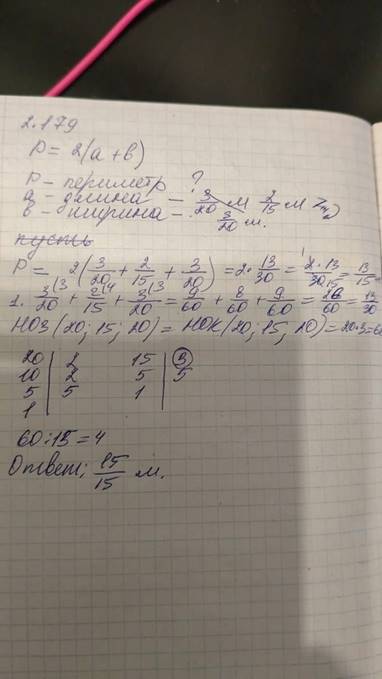 2.179
P = 2(a+b)
P - периметр ?
a - длина - 3/20 м 2/15 м
b - ширина - 3/20 м.
пусть
P = 2(3/20 + 2/15 + 3/20) = 2·13/30 = 2·13/30 15 = 13/15
1. 3/20 \3 + 2/15 \4 + 3/20 \3 = 9/60 + 8/60 + 9/60 = 26/60 = 13/30
НОЗ (20; 15; 20) = НОК (20; 15, 20) = 20·3=6
20 | 2 15 | 3
10 | 2 5 | 5
5 | 5 1 |
1 |
60:15=4
Ответ: 15/15 м.